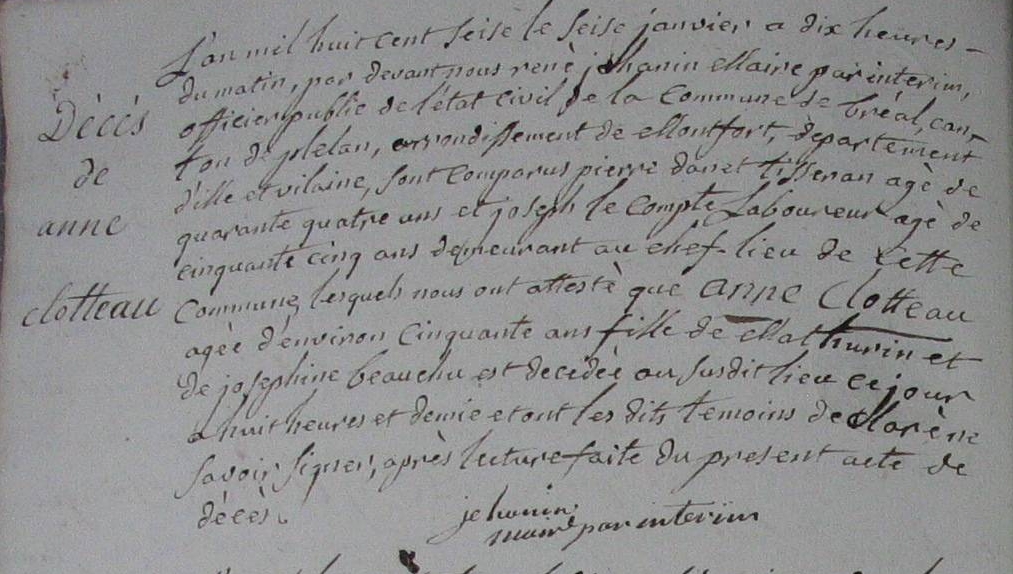 L'an mil huit cent seise le seise janvier a dix heures -
du matin, par devant nous renè jehanin Maire par interim,
officier public de l'état civil de la Commune de bréal, can-
ton de plelan, arrondissement de Montfort, departement
d'ille et vilaine, sont comparus pierre danet tisseran agè de
quarante quatre ans et joseph le Compte Laboureur agè de
cinquante cinq ans demeurant au chef-lieu de cette
Commune, lesquels nous ont attestè que anne Clotteau
agèe d'environ Cinquante ans fille de Mathurin et
de josephine beauchu est decèdèe au susdit lieu ce jour
a huit heures et demie et ont les dits temoins declarè ne
savoir signer, après lecture faite du present acte de
décès.
Dècés
de
anne
clotteau
jehanin
maire par interim